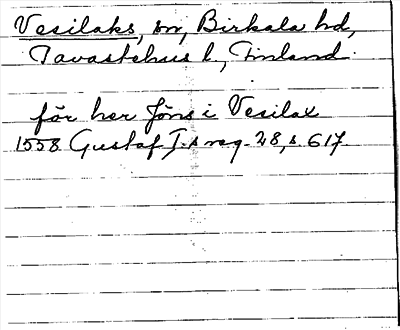 Vesilaks, sn, Birkala hd,
Tavastehus l., Finland.
för her Jöns i Vesilax
1558 Gustaf I.s reg. 28, s. 617